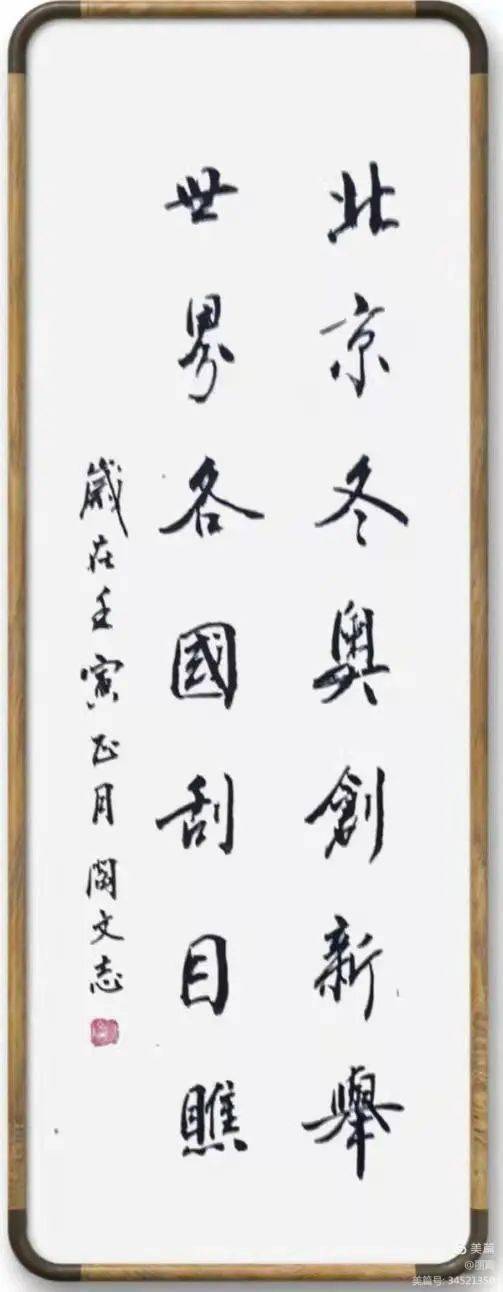 北京冬奥創新舉
世界各國刮目瞧
歲在壬寅正月 閆文志
美篇
美篇号: 34521350